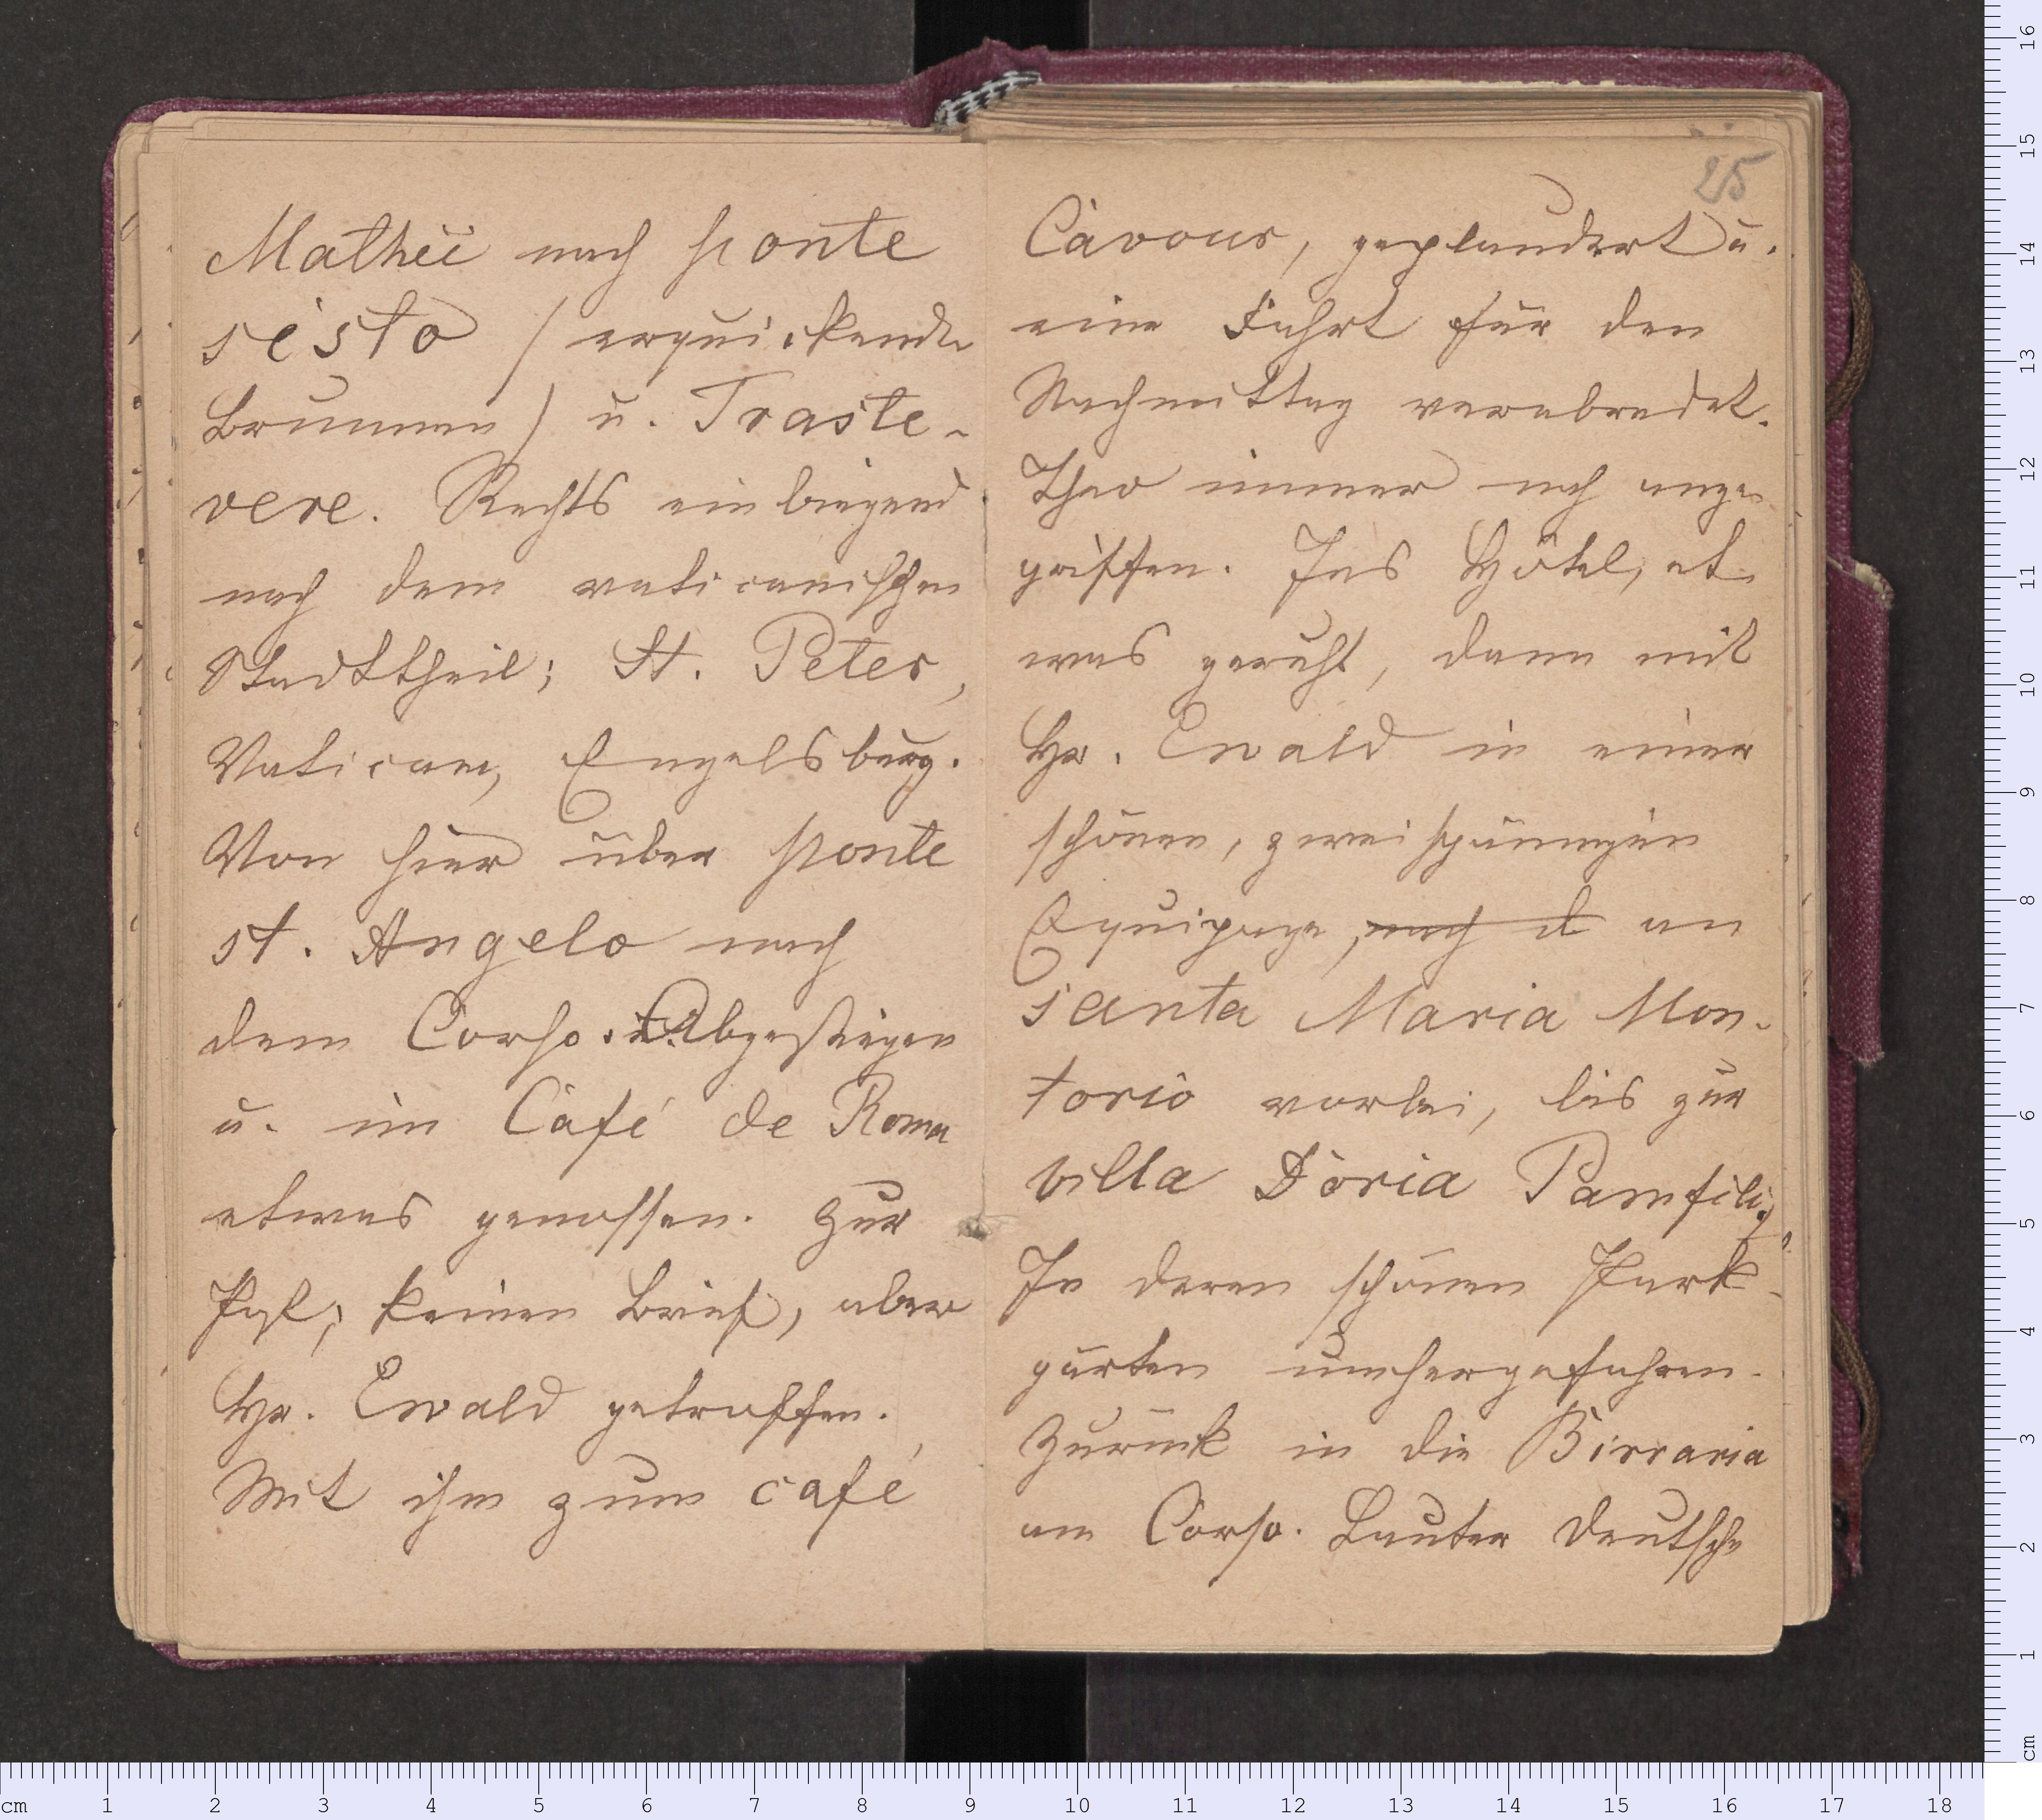 Mathëi nach ponte
sisto / erquickende
Brunnen / u. Traste-
vere. Rechts einbiegend
nach dem vaticanischen
Stadttheil; St. Peter,
Vatican, Engelsburg.
Von hier über ponte
st. Angelo nach
dem Corso. Abgestiegen
u. im Café de Roma
etwas genossen. Zur
Post; keinen Brief, aber
Hr. Ewald getroffen.
Mit ihm zum café
25
Cavour, geplaudert u.
eine Fahrt für den
Nachmittag verabredet.
Theo immer noch ange-
griffen. Ins Hôtel, et-
was geruht, dann mit
Hr. Ewald in einer
schönen, zweispännigen
Equipage, nach d an
santa Maria Mon-
torio vorbei, bis zur
villa Doria Pamfili.
In deren schönen Park-
gärten umhergefahren.
Zurück in die Birraria
am Corso. Lauter Deutsche
cm 1 2 3 4 5 6 7 8 9 10 11 12 13 14 15 16 17 18
cm 1 2 3 4 5 6 7 8 9 10 11 12 13 14 15 16